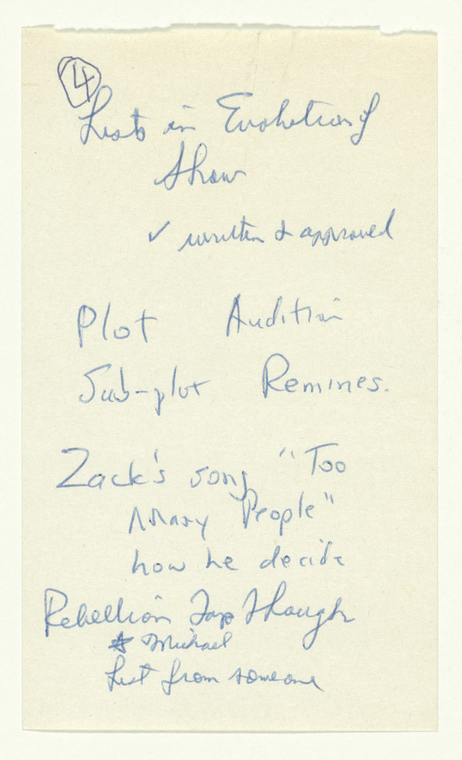 4
Lists in Evolution of
Show
✓ written & approved
Plot Audition
Sub-plot Remines.
Zack's song "Too
Many People"
how he decide
Rebellion Tap though
* Michael
List from someone